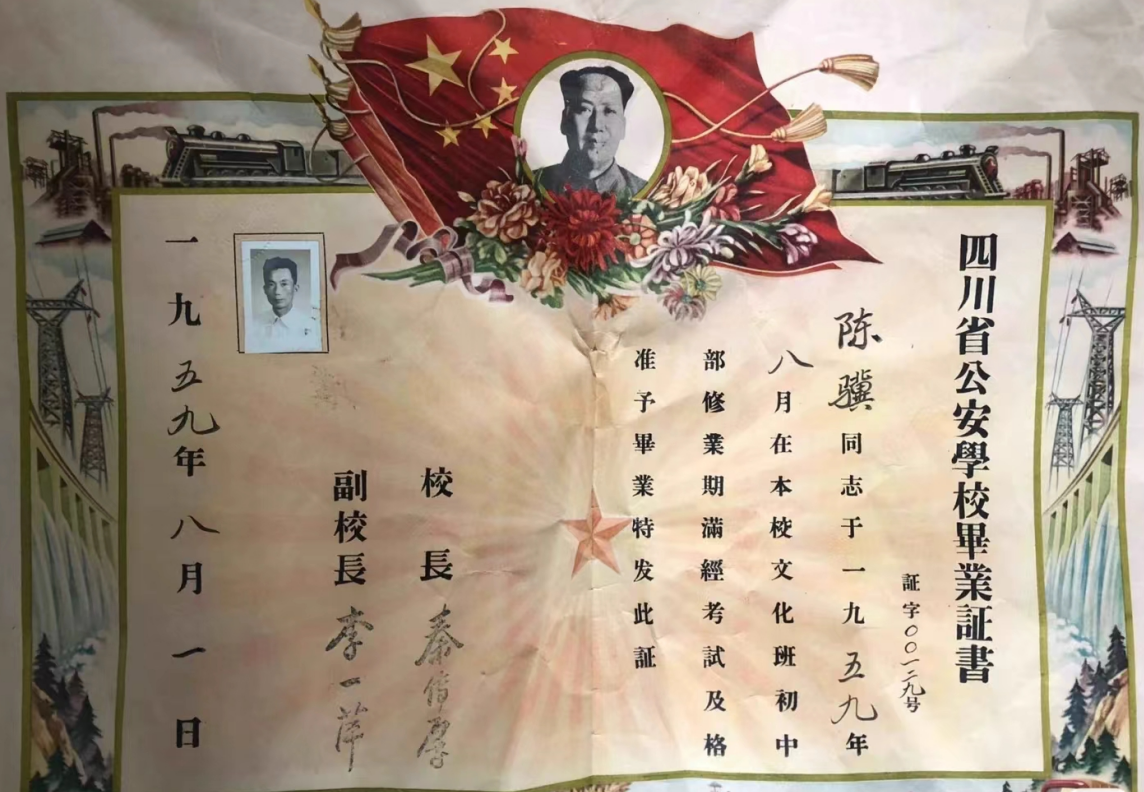 四川省公安學校畢業証書
証字00一二九号
陈骥同志于一九五九年
八月在本校文化班初中
部修業期滿經考試及格
准予畢業特发此証
校長秦傳厚
副校長李一萍
一九五九年八月一日